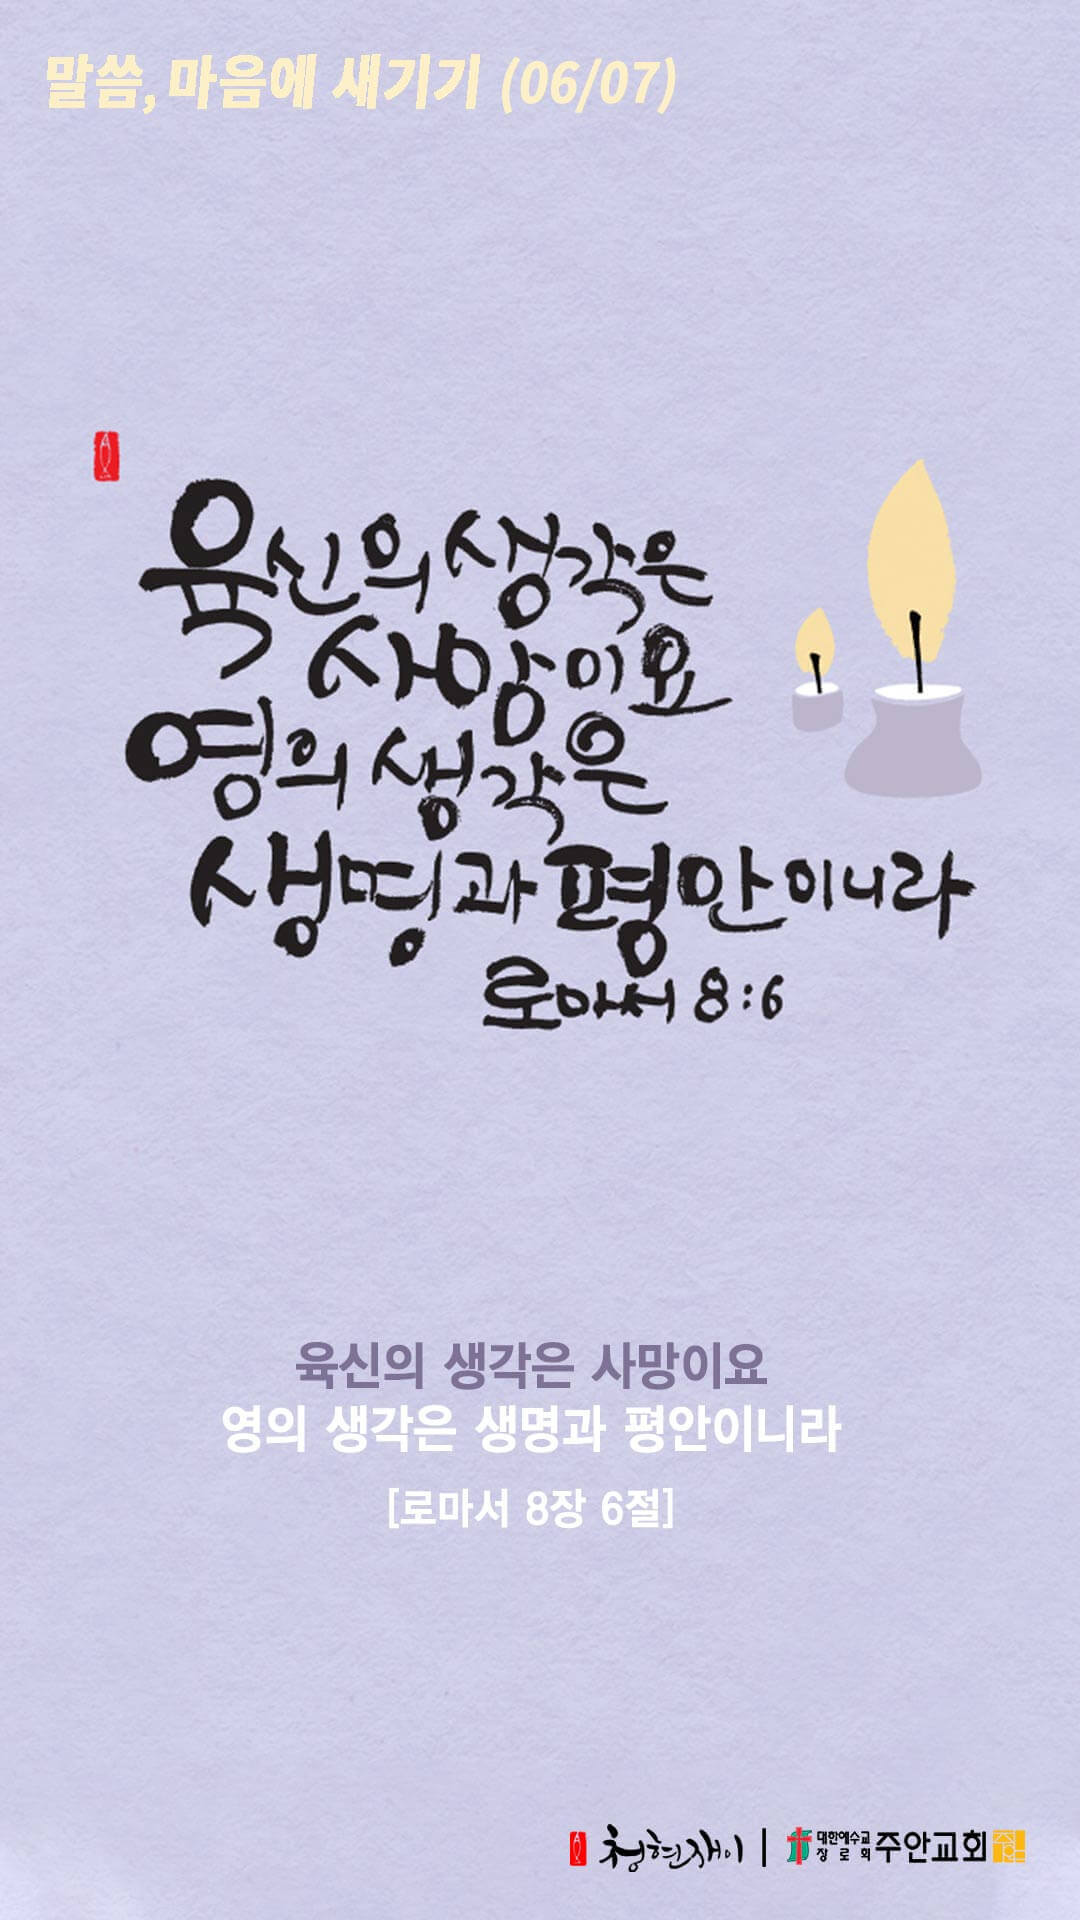 말씀, 마음에 새기기 (06/07)
육신의 생각은
사망이요
영의 생각은
생명과 평안이니라
로마서 8:6
육신의 생각은 사망이요
영의 생각은 생명과 평안이니라
[로마서 8장 6절]
청현재이 | 대한예수교장로회 주안교회